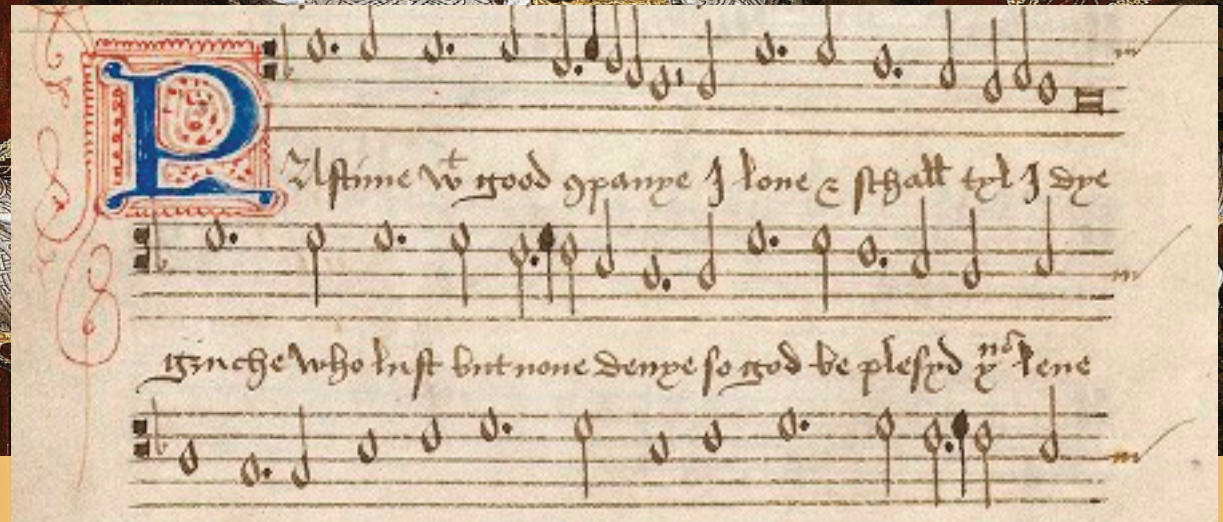 PAstime wt good ꝯpanye I loue & schall tyl I dye
gruche who lust but none denye so god be plesyd yus leue